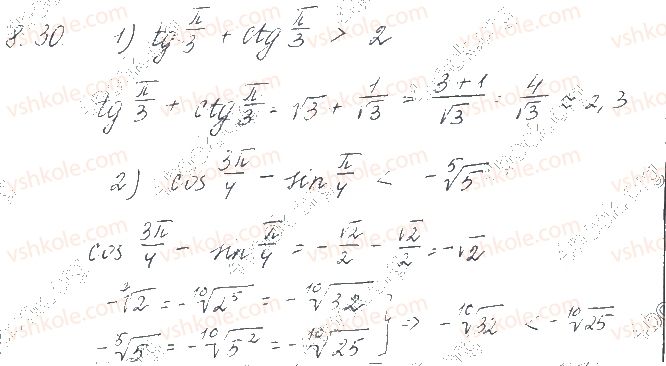 8.30 1) tg π/3 + ctg π/3 > 2
tg π/3 + ctg π/3 = √3 + 1/√3 = (3+1)/√3 = 4/√3 ≈ 2,3
2) cos 3π/4 − sin π/4 < −⁵√5
cos 3π/4 − sin π/4 = −√2/2 − √2/2 = −√2
−²√2 = −¹⁰√2⁵ = −¹⁰√32
−⁵√5 = −¹⁰√5² = −¹⁰√25 } => −¹⁰√32 < −¹⁰√25
vshkole.com